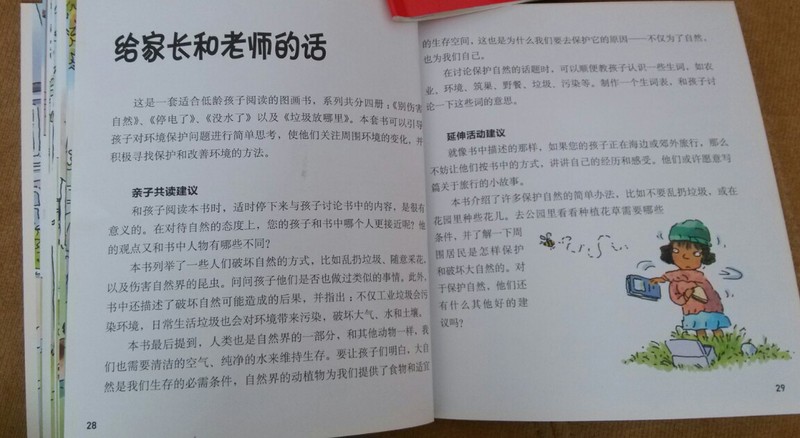 给家长和老师的话
这是一套适合低龄孩子阅读的图画书，系列共分四册：《别伤害
自然》、《停电了》、《没水了》以及《垃圾放哪里》。本套书可以引导
孩子对环境保护问题进行简单思考，使他们关注周围环境的变化，并
积极寻找保护和改善环境的方法。
亲子共读建议
和孩子阅读本书时，适时停下来与孩子讨论书中的内容，是很有
意义的。在对待自然的态度上，您的孩子和书中哪个人更接近呢？他
的观点又和书中人物有哪些不同？
本书列举了一些人们破坏自然的方式，比如乱扔垃圾、随意采花、
以及伤害自然界的昆虫。问问孩子们是否也做过类似的事情。此外，
书中还描述了破坏自然可能造成的后果，并指出：不仅工业垃圾会污
染环境，日常生活垃圾也会对环境带来污染，破坏大气、水和土壤。
本书最后提到，人类也是自然界的一部分，和其他动物一样，我
们也需要清洁的空气、纯净的水来维持生存。要让孩子们明白，大自
然是我们生存的必需条件，自然界的动植物为我们提供了食物和适宜
28
的生存空间，这也是为什么我们要去保护它的原因——不仅为了自然，
也为我们自己。
在讨论保护自然的话题时，可以顺便教孩子认识一些生词，如农
业、环境、筑巢、野餐、垃圾、污染等。制作一个生词表，和孩子讨
论一下这些词的意思。
延伸活动建议
就像书中描述的那样，如果您的孩子正在海边或郊外旅行，那么
不妨让他们按书中的方式，讲讲自己的经历和感受。他们或许愿意写
篇关于旅行的小故事。
本书介绍了许多保护自然的简单办法，比如不要乱扔垃圾，或在
花园里种些花儿。去公园里看看种植花草需要哪些
条件，并了解一下周
围居民是怎样保护
和破坏大自然的。对
于保护自然，他们还
有什么其他好的建
议吗？
29